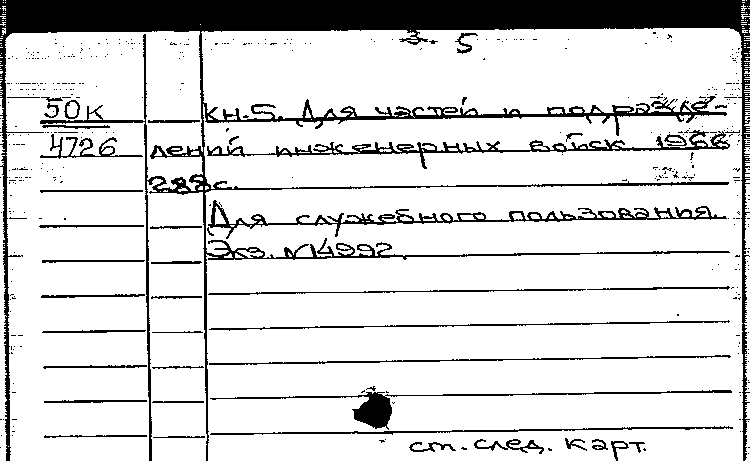 3. 5
50к кн.5. Для частей и подразде-
4726 лений инженерных войск 1966
288с.
Для служебного пользования.
Экз. №14992.
см. след. карт.